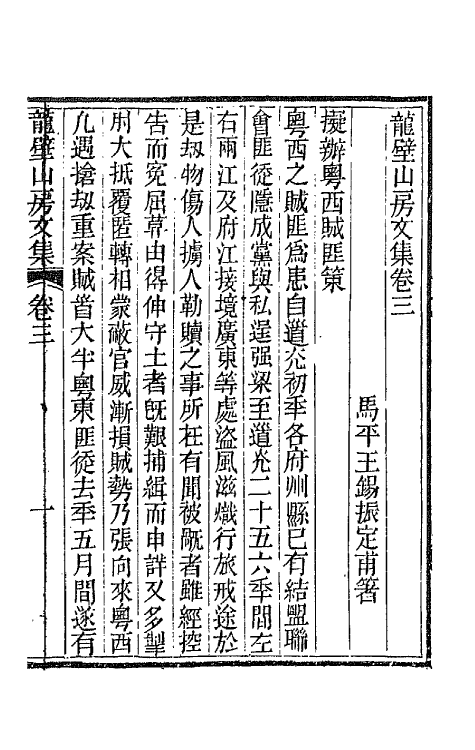 龍壁山房文集卷三
馬平王錫振定甫箸
擬辦粵西賊匪策
粵西之賊匪爲患自道光初年各府州縣巳有結盟聯
會匪徒隱成黨與私逞强梁至道光二十五六年間左
右兩江及府江接境廣東等處盜風滋熾行旅戒途於
是刼物傷人擄人勒贖之事所在有聞被害者雖經控
告而冤屈莫由得伸守土者旣艱捕緝而申詳又多掣
肘大抵覆匿轉相蒙蔽官威漸損賊勢乃張向來粵西
凡遇搶刼重案賊酋大半粵東匪徒去年五月間遂有
龍壁山房文集
卷三
一